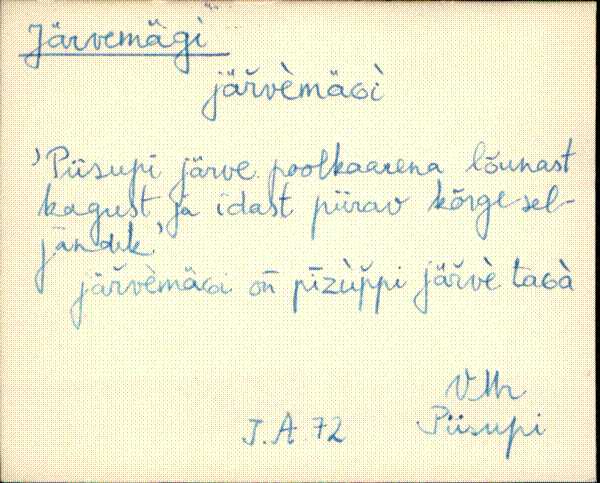 Järvemägi
järvèmäɢì
'Piisupi järve poolkaarena lõunast
kagust ja idast piirav kõrge sel-
jandik.'
järvèmäɢi on̄ pīzùp̆pi järvè taɢà
VMr
J.A. 72 Piisupi